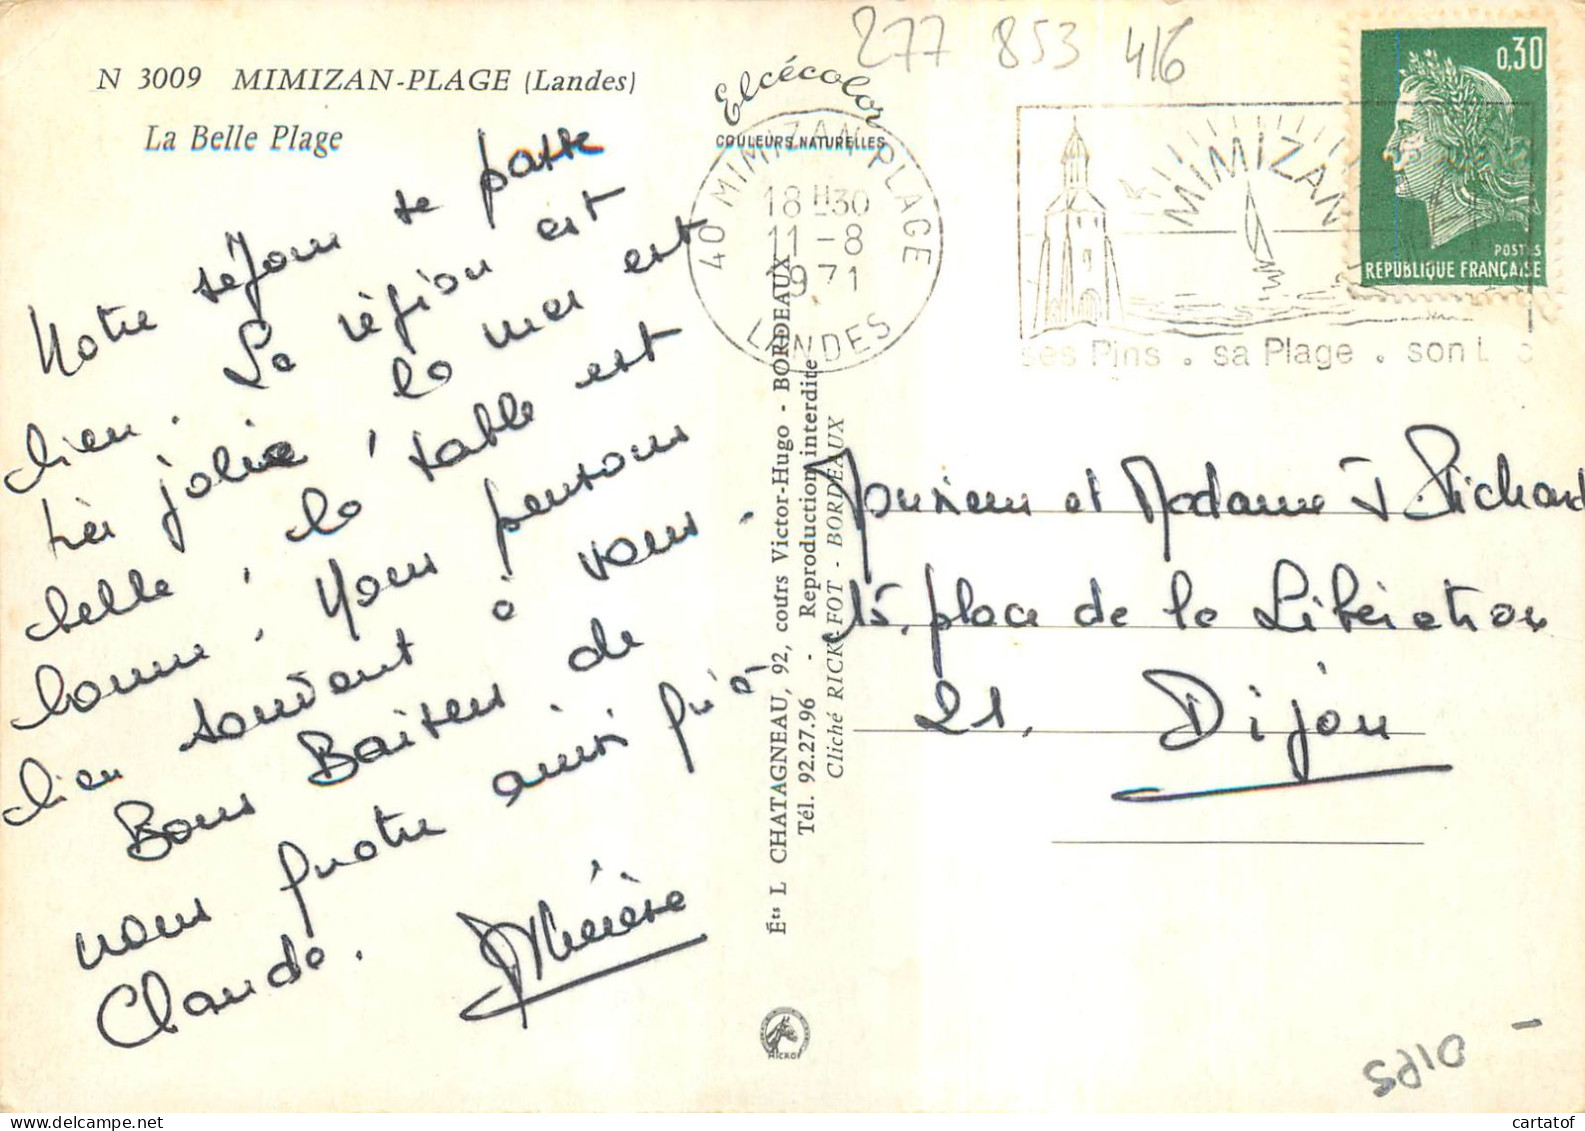 N 3009 MIMIZAN-PLAGE (Landes)
La Belle Plage
Notre séjour se passe
bien. La région est
très jolie, la mer est
belle, la table est
bonne, Nous pensons
bien souvent à vous.
Bons Baisers de
nous quatre ainsi qu'à
Claude.
Elcécolor
COULEURS NATURELLES
277 853 416
40 MIMIZAN PLAGE
18H30
11-8
1971
LANDES
MIMIZAN
ses Pins . sa Plage . son L c
0,30
POSTES
REPUBLIQUE FRANÇAISE
Éts L CHATAGNEAU, 92, cours Victor-Hugo - BORDEAUX
Tél. 92.27.96 - Reproduction interdite
Cliché RICK FOT - BORDEAUX
Monsieur et Madame J Richard
15, place de la Libération
21. Dijon
cartatof